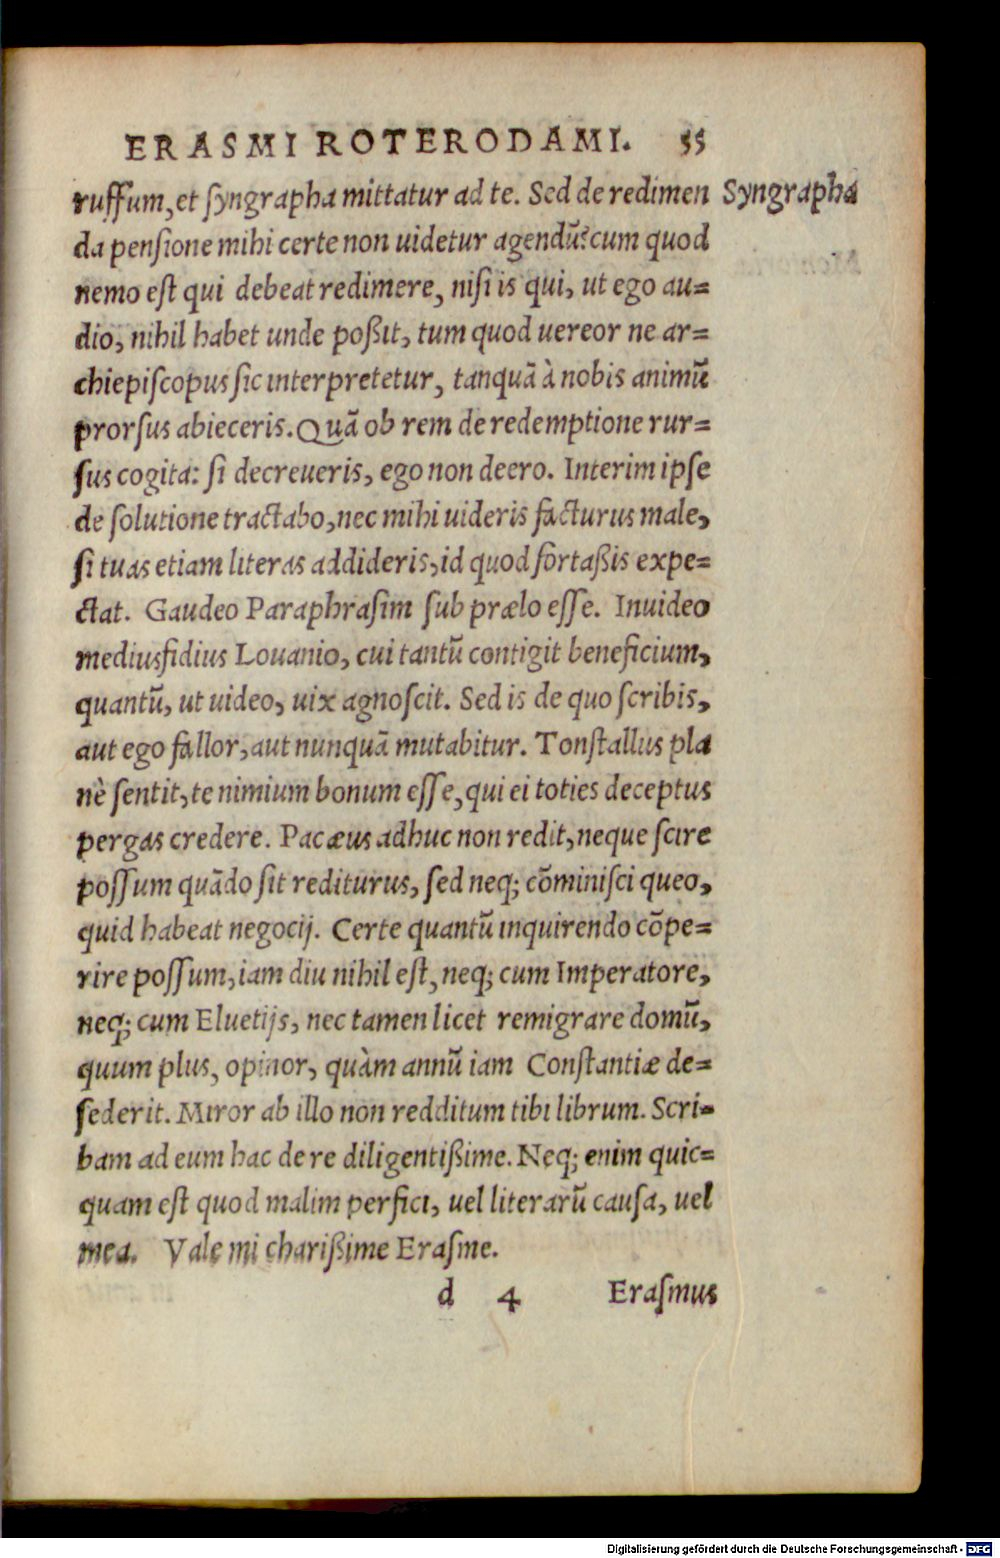 ERASMI ROTERODAMI. 55
ruffum, et syngrapha mittatur ad te. Sed de redimen Syngrapha
da pensione mihi certe non uidetur agendũ: cum quod
nemo est qui debeat redimere, nisi is qui, ut ego au=
dio, nihil habet unde poßit, tum quod uereor ne ar=
chiepiscopus sic interpretetur, tanquã à nobis animũ
prorsus abieceris. Quã ob rem de redemptione rur=
sus cogita: si decreueris, ego non deero. Interim ipse
de solutione tractabo, nec mihi uideris facturus male,
si tuas etiam literas addideris, id quod fortaßis expe=
ctat. Gaudeo Paraphrasim sub prælo esse. Inuideo
mediusfidius Louanio, cui tantũ contigit beneficium,
quantũ, ut uideo, uix agnoscit. Sed is de quo scribis,
aut ego fallor, aut nunquã mutabitur. Tonstallus pla
nè sentit, te nimium bonum esse, qui ei toties deceptus
pergas credere. Pacæus adhuc non redit, neque scire
possum quãdo sit rediturus, sed neq; cõminisci queo,
quid habeat negocij. Certe quantũ inquirendo cõpe=
rire possum, iam diu nihil est, neq; cum Imperatore,
neq; cum Eluetijs, nec tamen licet remigrare domũ,
quum plus, opinor, quàm annũ iam Constantiæ de=
sederit. Miror ab illo non redditum tibi librum. Scri=
bam ad eum hac de re diligentißime. Neq; enim quic=
quam est quod malim perfici, uel literarũ causa, uel
mea. Vale mi charißime Erasme.
d 4 Erasmus
Digitalisierung gefördert durch die Deutsche Forschungsgemeinschaft - DFG